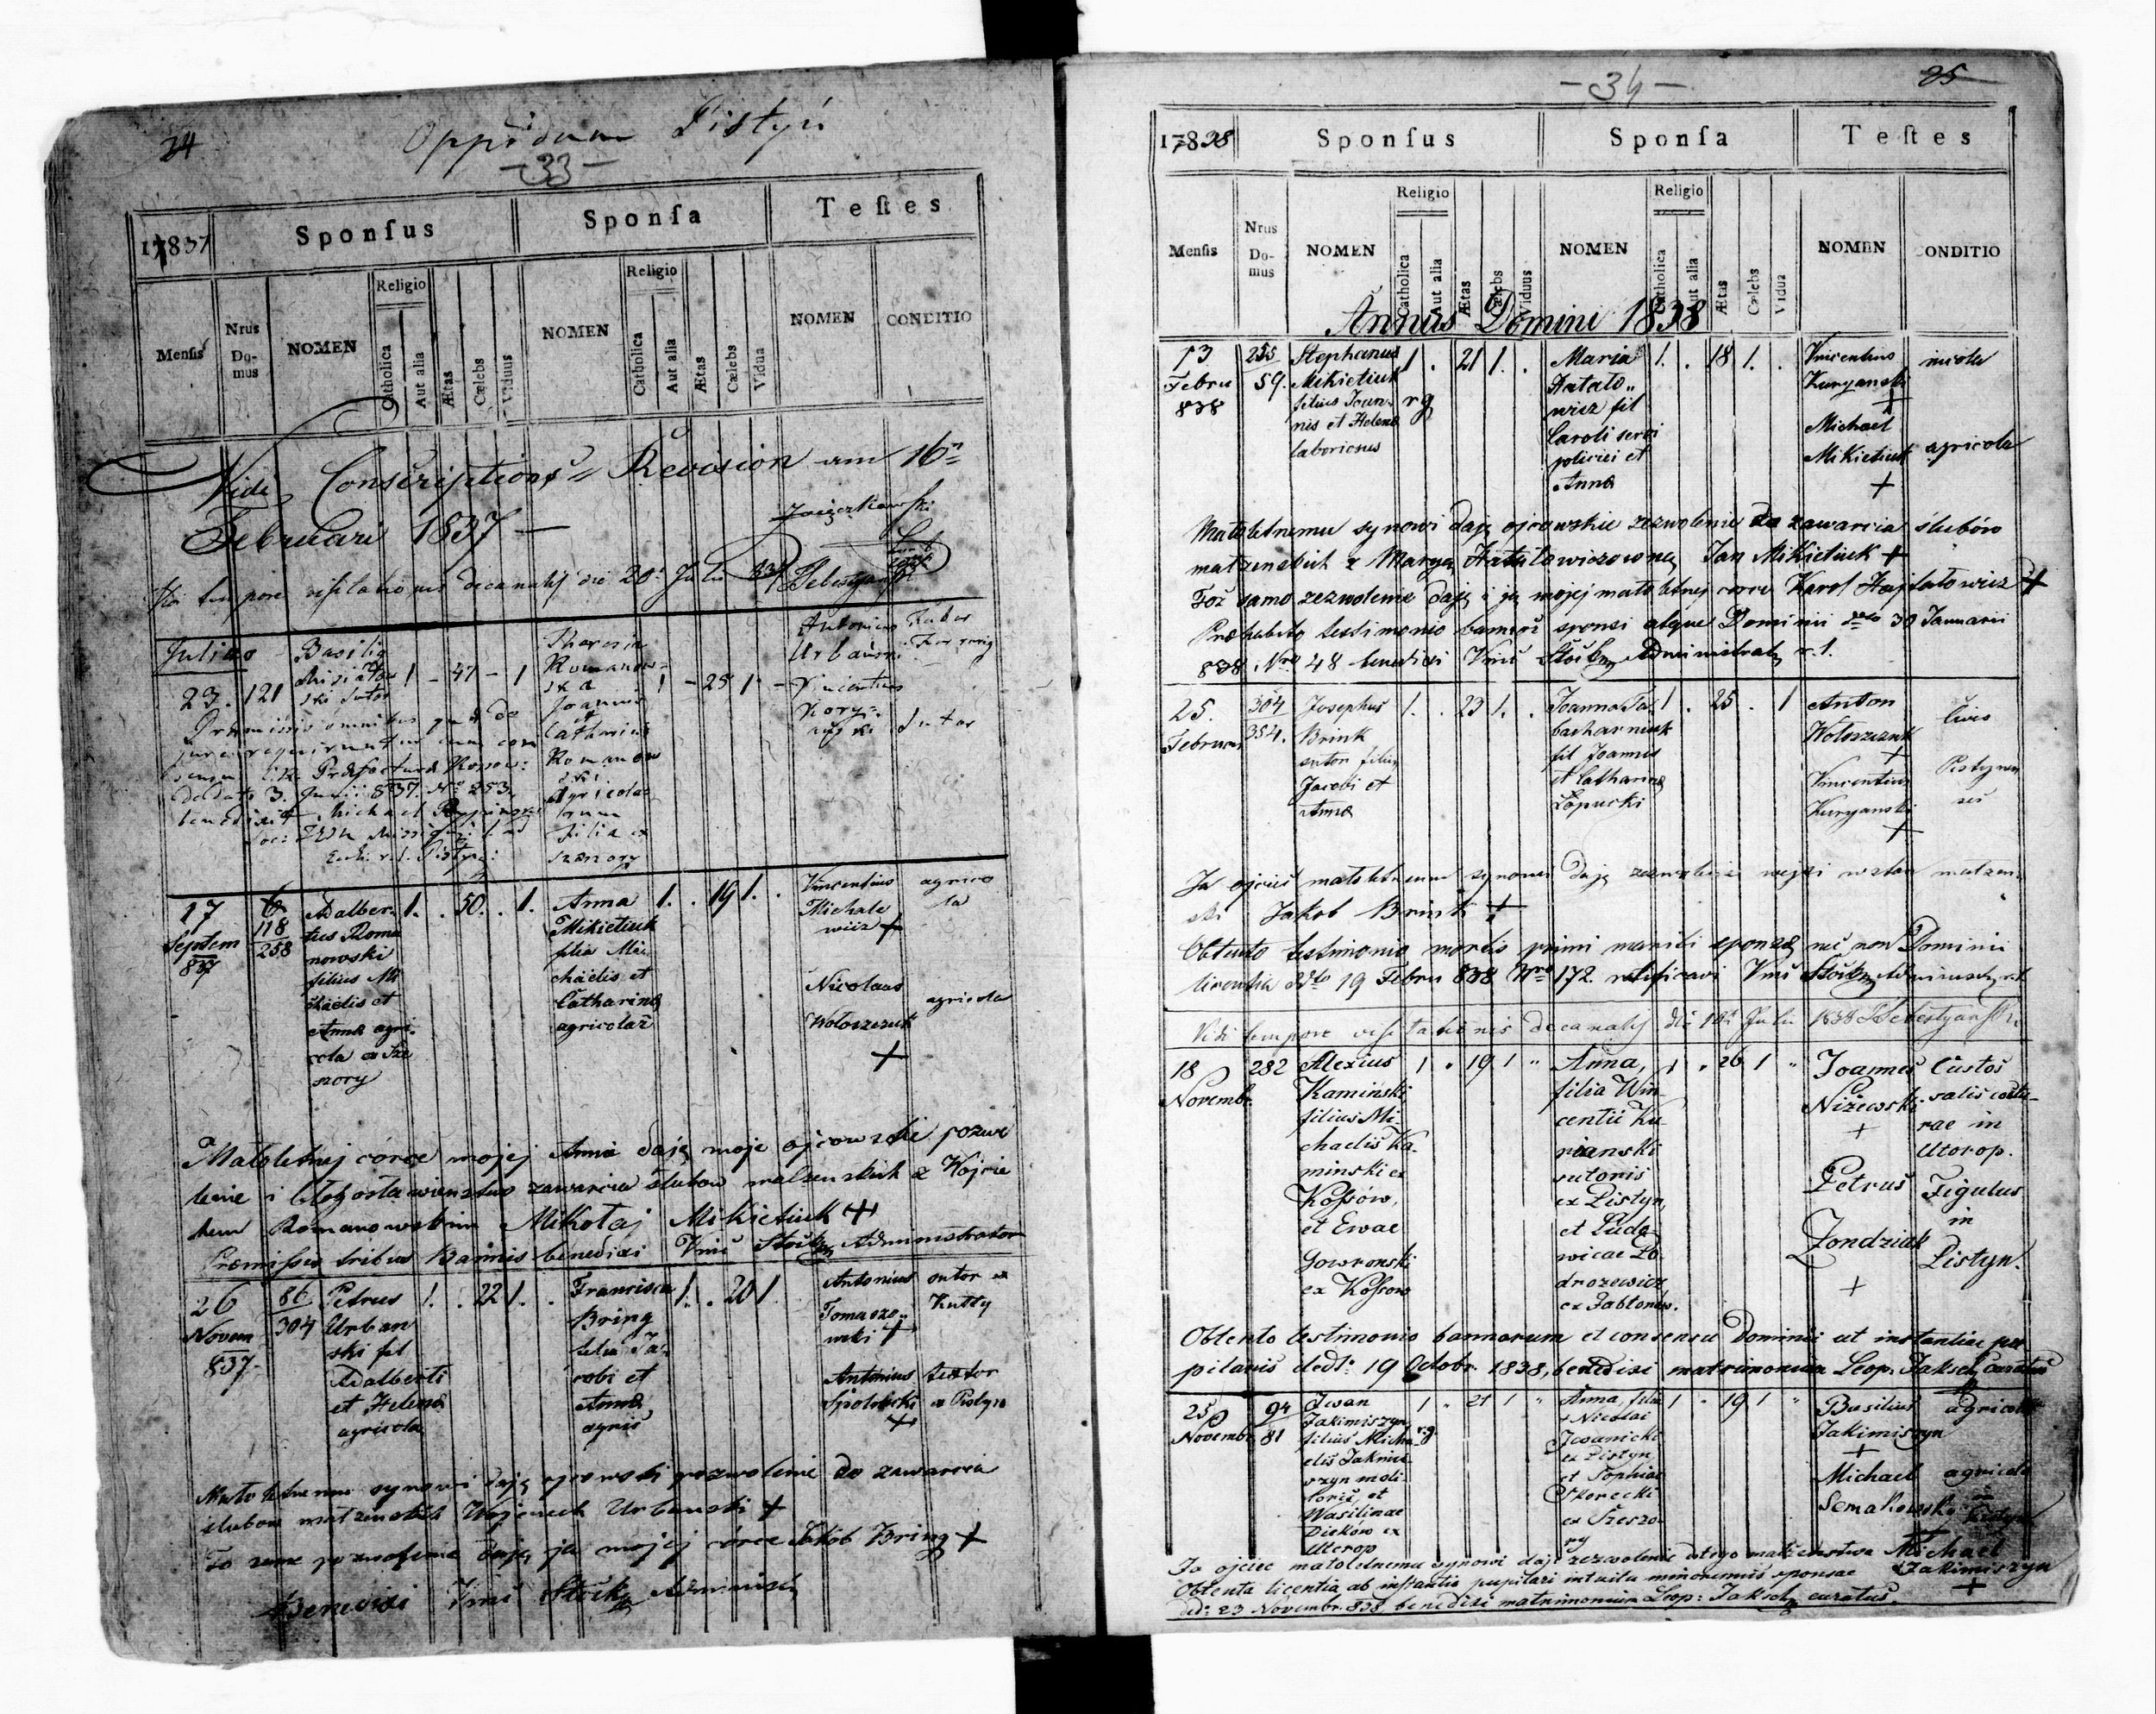 24
Oppidum Pistyń
-33-
17837
Sponsus
Sponsa
Testes
Mensis
Nrus Do-mus
NOMEN
Religio
Catholica
Aut alia
Ætas
Cælebs
Viduus
NOMEN
Religio
Catholica
Aut alia
Ætas
Cælebs
Vidua
NOMEN
CONDITIO
Vidi Conscriptions Revision am 16n
Februari 1837 —
tempore visitationis decanalis die 20 Juli 837
Julius
23. 121
Basilius
sutor
1 - 47 - 1
Theresia
Romanow-
ska
Joannis
et
Catharinæ
Romanow
ski
agricola
filia ex
1 - 25 1 -
Antonius
Urbański
Vincentius
Sutor
Præmissis omnibus quæ de
jure requiruntur cum con
sensu Præfecturæ
de dato 3. Junii 837. No 253.
benedixit Michael
17
Septem
837
6
118
258
Adalber-
tus Roma
nowski
filius Mi
chaelis et
Annæ agri-
cola ex Sze
szory
1. . 50. . 1.
Anna
Mikietiuk
filia Mi-
chaelis et
Catharinæ
agricolar
1. . 19 1. .
Vincentius
Michale
wicz +
Nicolaus
Wołoszczuk
+
agrico
la
agricola
Małoletnej córce mojej Annie daję moje ojcowskie pozwo
lenie i błogosławieństwo zawarcia ślubow małzenskich z Wojcie
chem Romanowskim Mikołaj Mikietiuk +++
Præmissis tribus Bannis benedixi Vinc Stock Administrator
26
Novem
837-
86
304
Petrus
Urban
ski fil
Adalberti
et Helenæ
agricola
1. . 22 1. .
Francisca
Bring
filia Ja-
cobi et
Annæ
agric
1. . 20 1
Antonius
Tomaszo-
wski +
Antonius
+
sutor ex
Kutty
textor
ex Pistyn
Małoletnemu synowi daję ojcowski pozwolenie do zawarcia
slubow małzenskich Wojciech Urbanski +
To same pozwolenie daję ja mojej córce Jakób Bring +
Benedixi Vinc Stock Administr
-34-
25
17838
Sponsus
Sponsa
Testes
Mensis
Nrus Do-mus
NOMEN
Religio
Catholica
Aut alia
Ætas
Cælebs
Viduus
NOMEN
Religio
Catholica
Aut alia
Ætas
Cælebs
Vidua
NOMEN
CONDITIO
Annus Domini 1838
13
Febru
838
255
59.
Stephanus
Mikietiuk
filius Joan-
nis et Helenæ
laboriosus
1 . 21 1. .
r g
Maria
Hatato-
wicz fil
Caroli servi
policiei et
Annæ
1. . 18 1. .
Vincentius
Kuryanski
+
Michael
Mikietiuk
+
incola
agricola
Małoletnemu synowi daję ojcowskie zezwolenie do zawarcia ślubów
małzenskich z Maryą Hatatowiczowną Jan Mikietiuk +
Toż samo zezwolenie daję i ja mojej małoletnej corce Karol Hajtatowicz +
Præhabito testimonio bannor sponsi atque Dominii ddto 30 Januarii
838 Nro 48 benedixi Vinc Stock Administrator r. l.
25.
Februar
304
354.
Josephus
Brink
sutor filius
Jacobi et
Annæ
1. . 23 1. .
Joanna Ta-
bacharniuk
fil Joannis
et Catharinæ
Łopucki
1 . 25 . 1
Anton
Wołoszczuk
+
Vincentius
Kuryanski
+
Cives
Pistynen
ses
Ja ojciec małoletniemu synowi daję zezwolenie wejsci w stan małzen-
ski Jakob Brink +
Obtento testimonio mortis primi mariti sponsæ nec non Dominii
licentia ddto 19 Febru 838 Nro 172. ratificavi Vinc Stock Administr r.l.
Vidi tempore visitationis decanalis die 10 Juli 1838
18
Novembr.
282
Alexius
Kamiński
filius Mi-
chaelis Ka-
minski ex
Kossów,
et Ewae
Gowronski
ex Kossow
1 . 19 1 "
Anna,
filia Win-
centii Ku-
rianski
sutoris
ex Pistyn,
et Ludo-
wicae Do-
drozewicz
ex Jabłonów.
1 . 26 1 "
Joannes
Niżewski
+
Petrus
Zondziak
+
Custos
salis coctu-
rae in
Utorop.
Figulus
in
Pistyn.
Obtento testimonio bannorum et consensu Dominii ut instantiae pu
pilaris dedt. 19 Octobr. 1838, benedixi matrimonium Leop. Jaksch curatus
25
Novembr.
94
81
Iwan
Jakimiszyn
filius Micha-
elis Jakimi-
szyn moli-
toris, et
Wasilinae
Dieków ex
Utorop
r.g
1 . 21 1 "
Anna, filia
Nicolai
Iwanicki
ex Pistyn
et Sophiae
Skorecki
ex Szeszo-
ry
1 . 19 1 "
Basilius
Jakimiszyn
+
Michael
Semakowski
agricola
agricola
Ja ojciec małoletnemu synowi daję zezwolenie do tego małżenstwa Michael
Jakimiszyn
+
Obtenta licentia ab instantia pupilari intuitu minorennis sponsae
dd. 23 Novembr. 838, benedixi matrimonium Leop: Jaksch curatus.